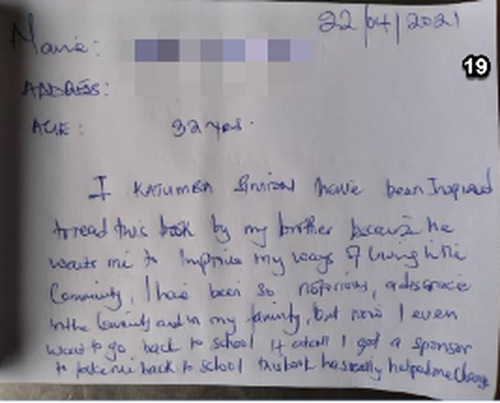 22/04/2021
Name:
19
ADDRESS:
AGE: 32 yrs.
I KATUMBA have been Inspired
to read this book by my brother because he
wants me to Improve my ways of living in the
Community, I have been so notorious, a disgrace
in the and in my family, but now I even
want to go back to school if atall I got a sponsor
to take me back to school this book has really helped me change